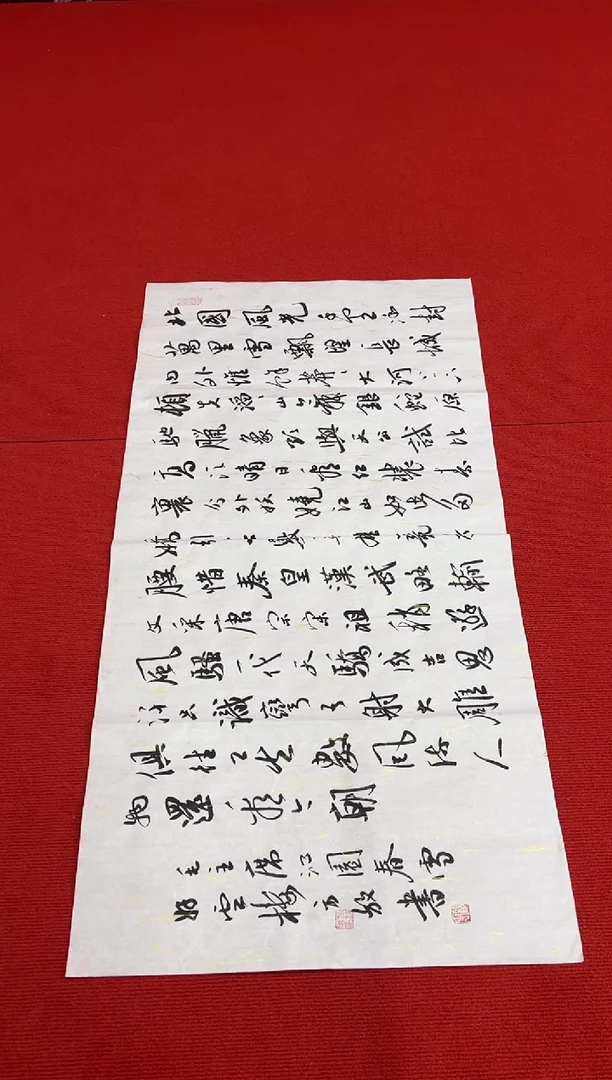 北國風光千里冰封
萬里雪飄望長城
內外惟餘莽、大河上下
頓失滔、山舞銀蛇原
馳臘象欲與天公試比
高須晴日看紅裝素
裹分外妖嬈江山如此多
嬌引無數英雄競折
腰惜秦皇漢武略輸
文采唐宗宋祖稍遜
風騷一代天驕成吉思
汗只識彎弓射大雕
俱往矣數風流人
物還看今朝
毛主席沁園春雪
雲樓書